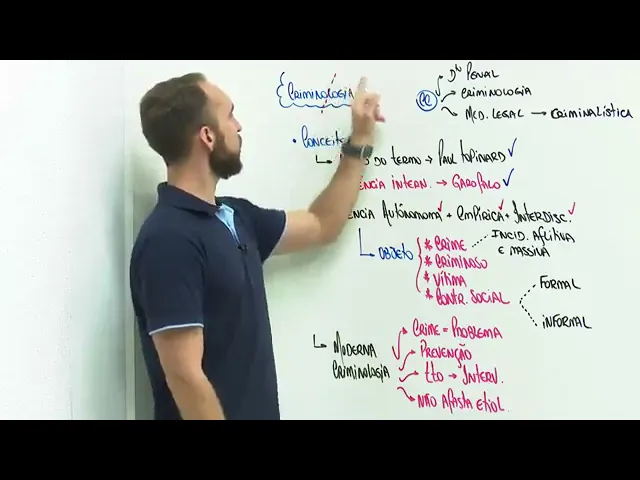 CRIMINOLOGIA
Dto PENAL
CRIMINOLOGIA
MED. LEGAL → CRIMINALÍSTICA
• CONCEITO
DO TERMO → PAUL TOPINARD ✓
ÊNCIA INTERN. → GAROFALO ✓
ÊNCIA AUTÔNOMA + EMPÍRICA + INTERDISC.
OBJETO
* CRIME
INCID. AFLITIVA
E MASSIVA
* CRIMINOSO
* VÍTIMA
* CONTR. SOCIAL
FORMAL
INFORMAL
MODERNA
CRIMINOLOGIA
CRIME = PROBLEMA
PREVENÇÃO
TTO → INTERV.
NÃO AFASTA ETIOL.